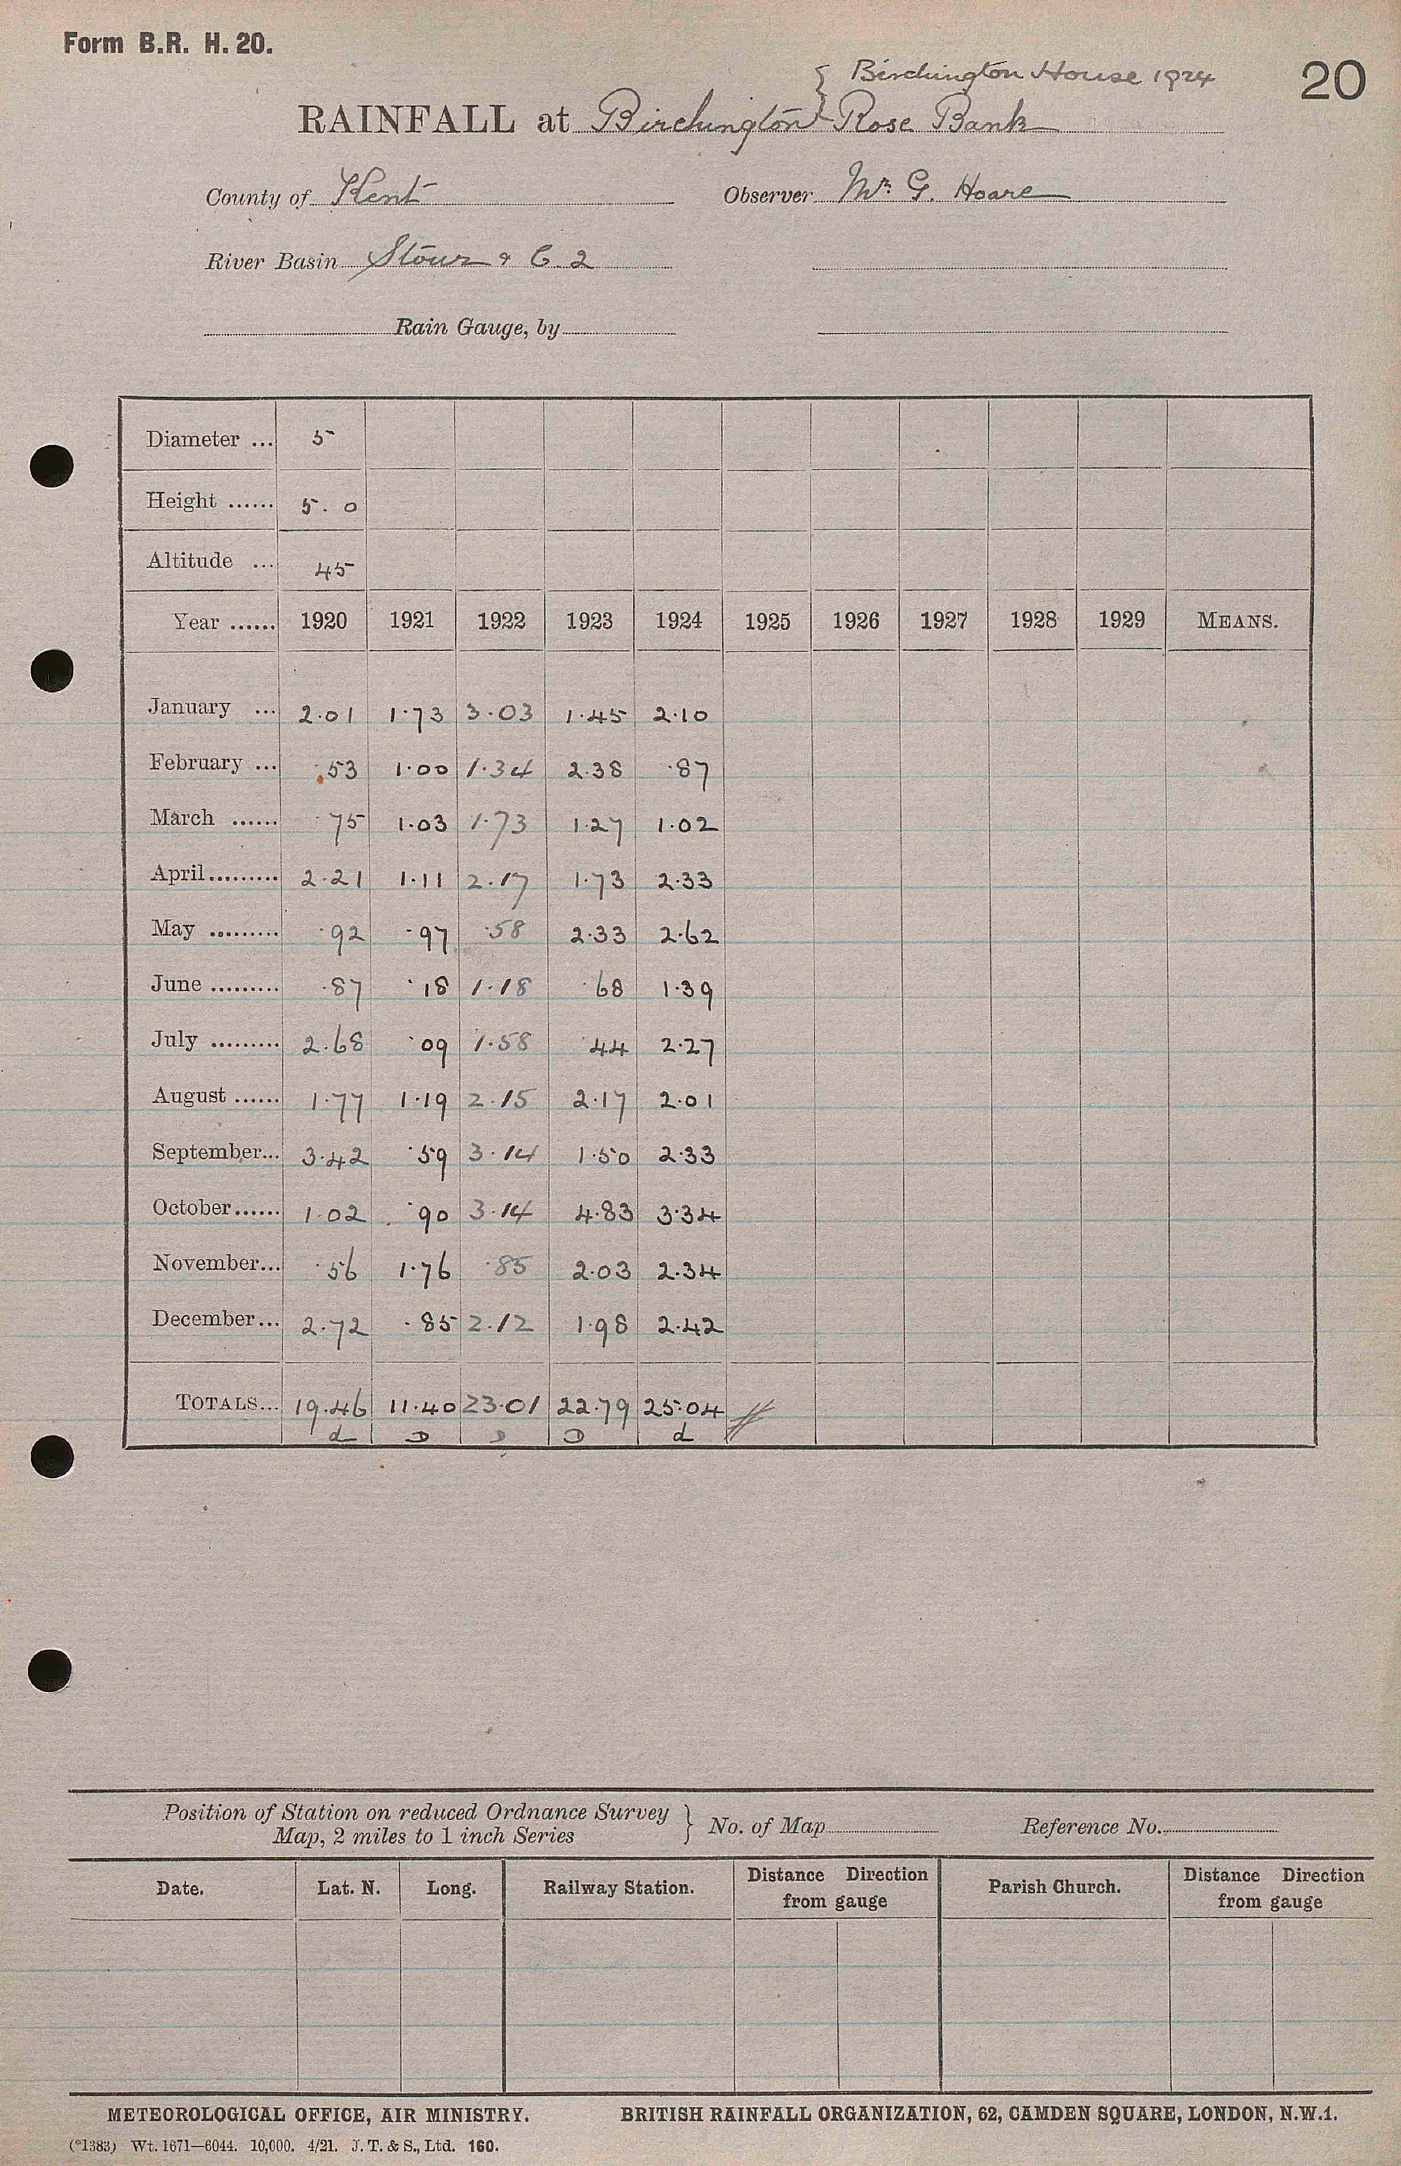 Form B.R. H. 20.
20
{ Birchington House 1924
RAINFALL at Birchington Rose Bank
County of Kent Observer Mr. G. Hoare
River Basin Stour & C. 2
Rain Gauge, by
Diameter ... 5
Height ...... 5. 0
Altitude ... 45
Year ...... 1920 1921 1922 1923 1924 1925 1926 1927 1928 1929 MEANS.
January ... 2.01 1.73 3.03 1.45 2.10
February ... .53 1.00 1.34 2.38 .87
March ...... .75 1.03 1.73 1.27 1.02
April......... 2.21 1.11 2.17 1.73 2.33
May ......... .92 .97 .58 2.33 2.62
June ......... .87 .18 1.18 .68 1.39
July ......... 2.68 .09 1.58 .44 2.27
August ...... 1.77 1.19 2.15 2.17 2.01
September... 3.42 .59 3.14 1.50 2.33
October...... 1.02 .90 3.14 4.83 3.34
November... .56 1.76 .85 2.03 2.34
December... 2.72 .85 2.12 1.98 2.42
TOTALS... 19.46 11.40 23.01 22.79 25.04
d D D D d
Position of Station on reduced Ordnance Survey } No. of Map Reference No.
Map, 2 miles to 1 inch Series
Date. Lat. N. Long. Railway Station. Distance Direction Parish Church. Distance Direction
from gauge from gauge
METEOROLOGICAL OFFICE, AIR MINISTRY. BRITISH RAINFALL ORGANIZATION, 62, CAMDEN SQUARE, LONDON, N.W.1.
(*1383) Wt. 1671—6044. 10,000. 4/21. J. T. & S., Ltd. 160.